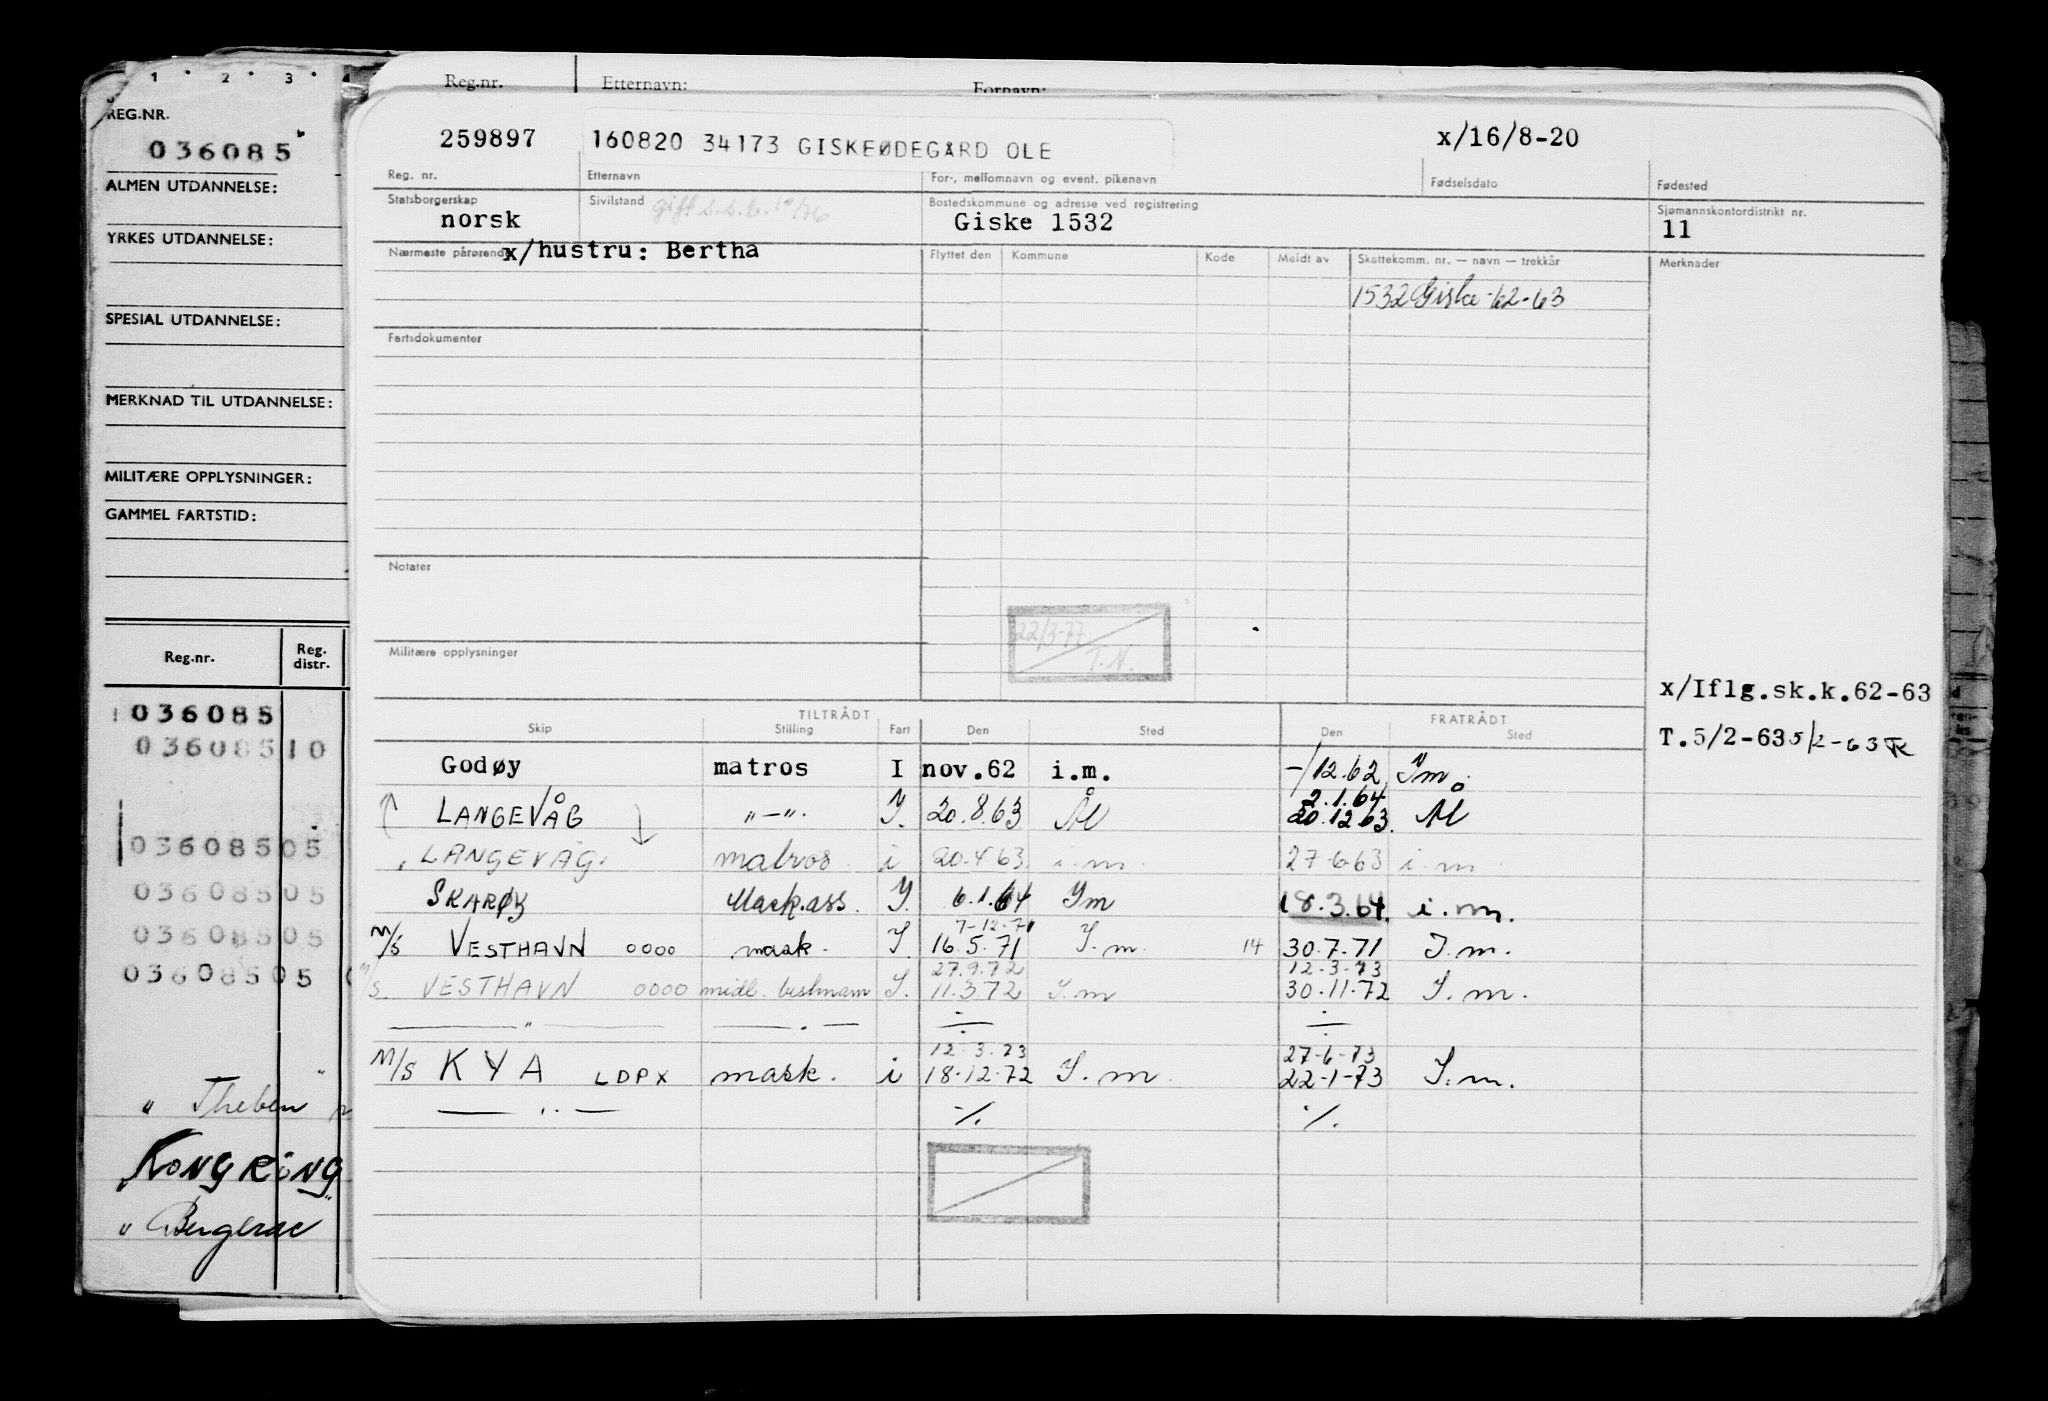 1 · 2 · 3 ·
REG.NR.
036085
ALMEN UTDANNELSE:
YRKES UTDANNELSE:
SPESIAL UTDANNELSE:
MERKNAD TIL UTDANNELSE:
MILITÆRE OPPLYSNINGER:
GAMMEL FARTSTID:
Reg.nr. Reg. distr.
036085
036085 10
036085 05
036085 05
036085 05
036085 05
" Theben
KONGRING
" Bergerac
Reg.nr. Etternavn: Fornavn:
259897 160820 34173 GISKEØDEGÅRD OLE x/16/8-20
Reg. nr. Etternavn For-, mellomnavn og event. pikenavn Fødselsdato Fødested
Statsborgerskap Sivilstand gift s.s.b. 10/76 Bostedskommune og adresse ved registrering Sjømannskontordistrikt nr.
norsk Giske 1532 11
Nærmeste pårørende x/hustru: Bertha Flyttet den Kommune Kode Meldt av Skattekomm. nr. — navn — trekkår Merknader
1532 Giske -62-63
Fartsdokumenter
Notater
22/3-77
T.N.
Militære opplysninger
x/Iflg.sk.k.62-63
T.5/2-63 5/2-63
TILTRÅDT FRATRÅDT
Skip Stilling Fart Den Sted Den Sted
Godøy matros I nov.62 i.m. -/12.62 Im
LANGEVÅG "-". I. 20.8.63 Ål 2.1.64 20.12.63. Ål
LANGEVÅG. matros i 20.4.63 i.m. 27-6-63 i.m
SKARØY Mask.ass. I. 6.1.64 Im 18.3.64. i.m.
7-12-71
M/S VESTHAVN 0000 mask. I. 16.5.71 I.m. 14 30.7.71 I.m.
27.9.72 12-3-73
M/S. VESTHAVN 0000 midl. bestmann I. 11.3.72 I.m 30.11.72 I.m.
— " — — . — ÷ ÷
12.3.73 27-6-73
M/S KYA LDPX mask. i 18-12-72 I.m. 22-1-73 I.m.
— " — ·/. ·/.